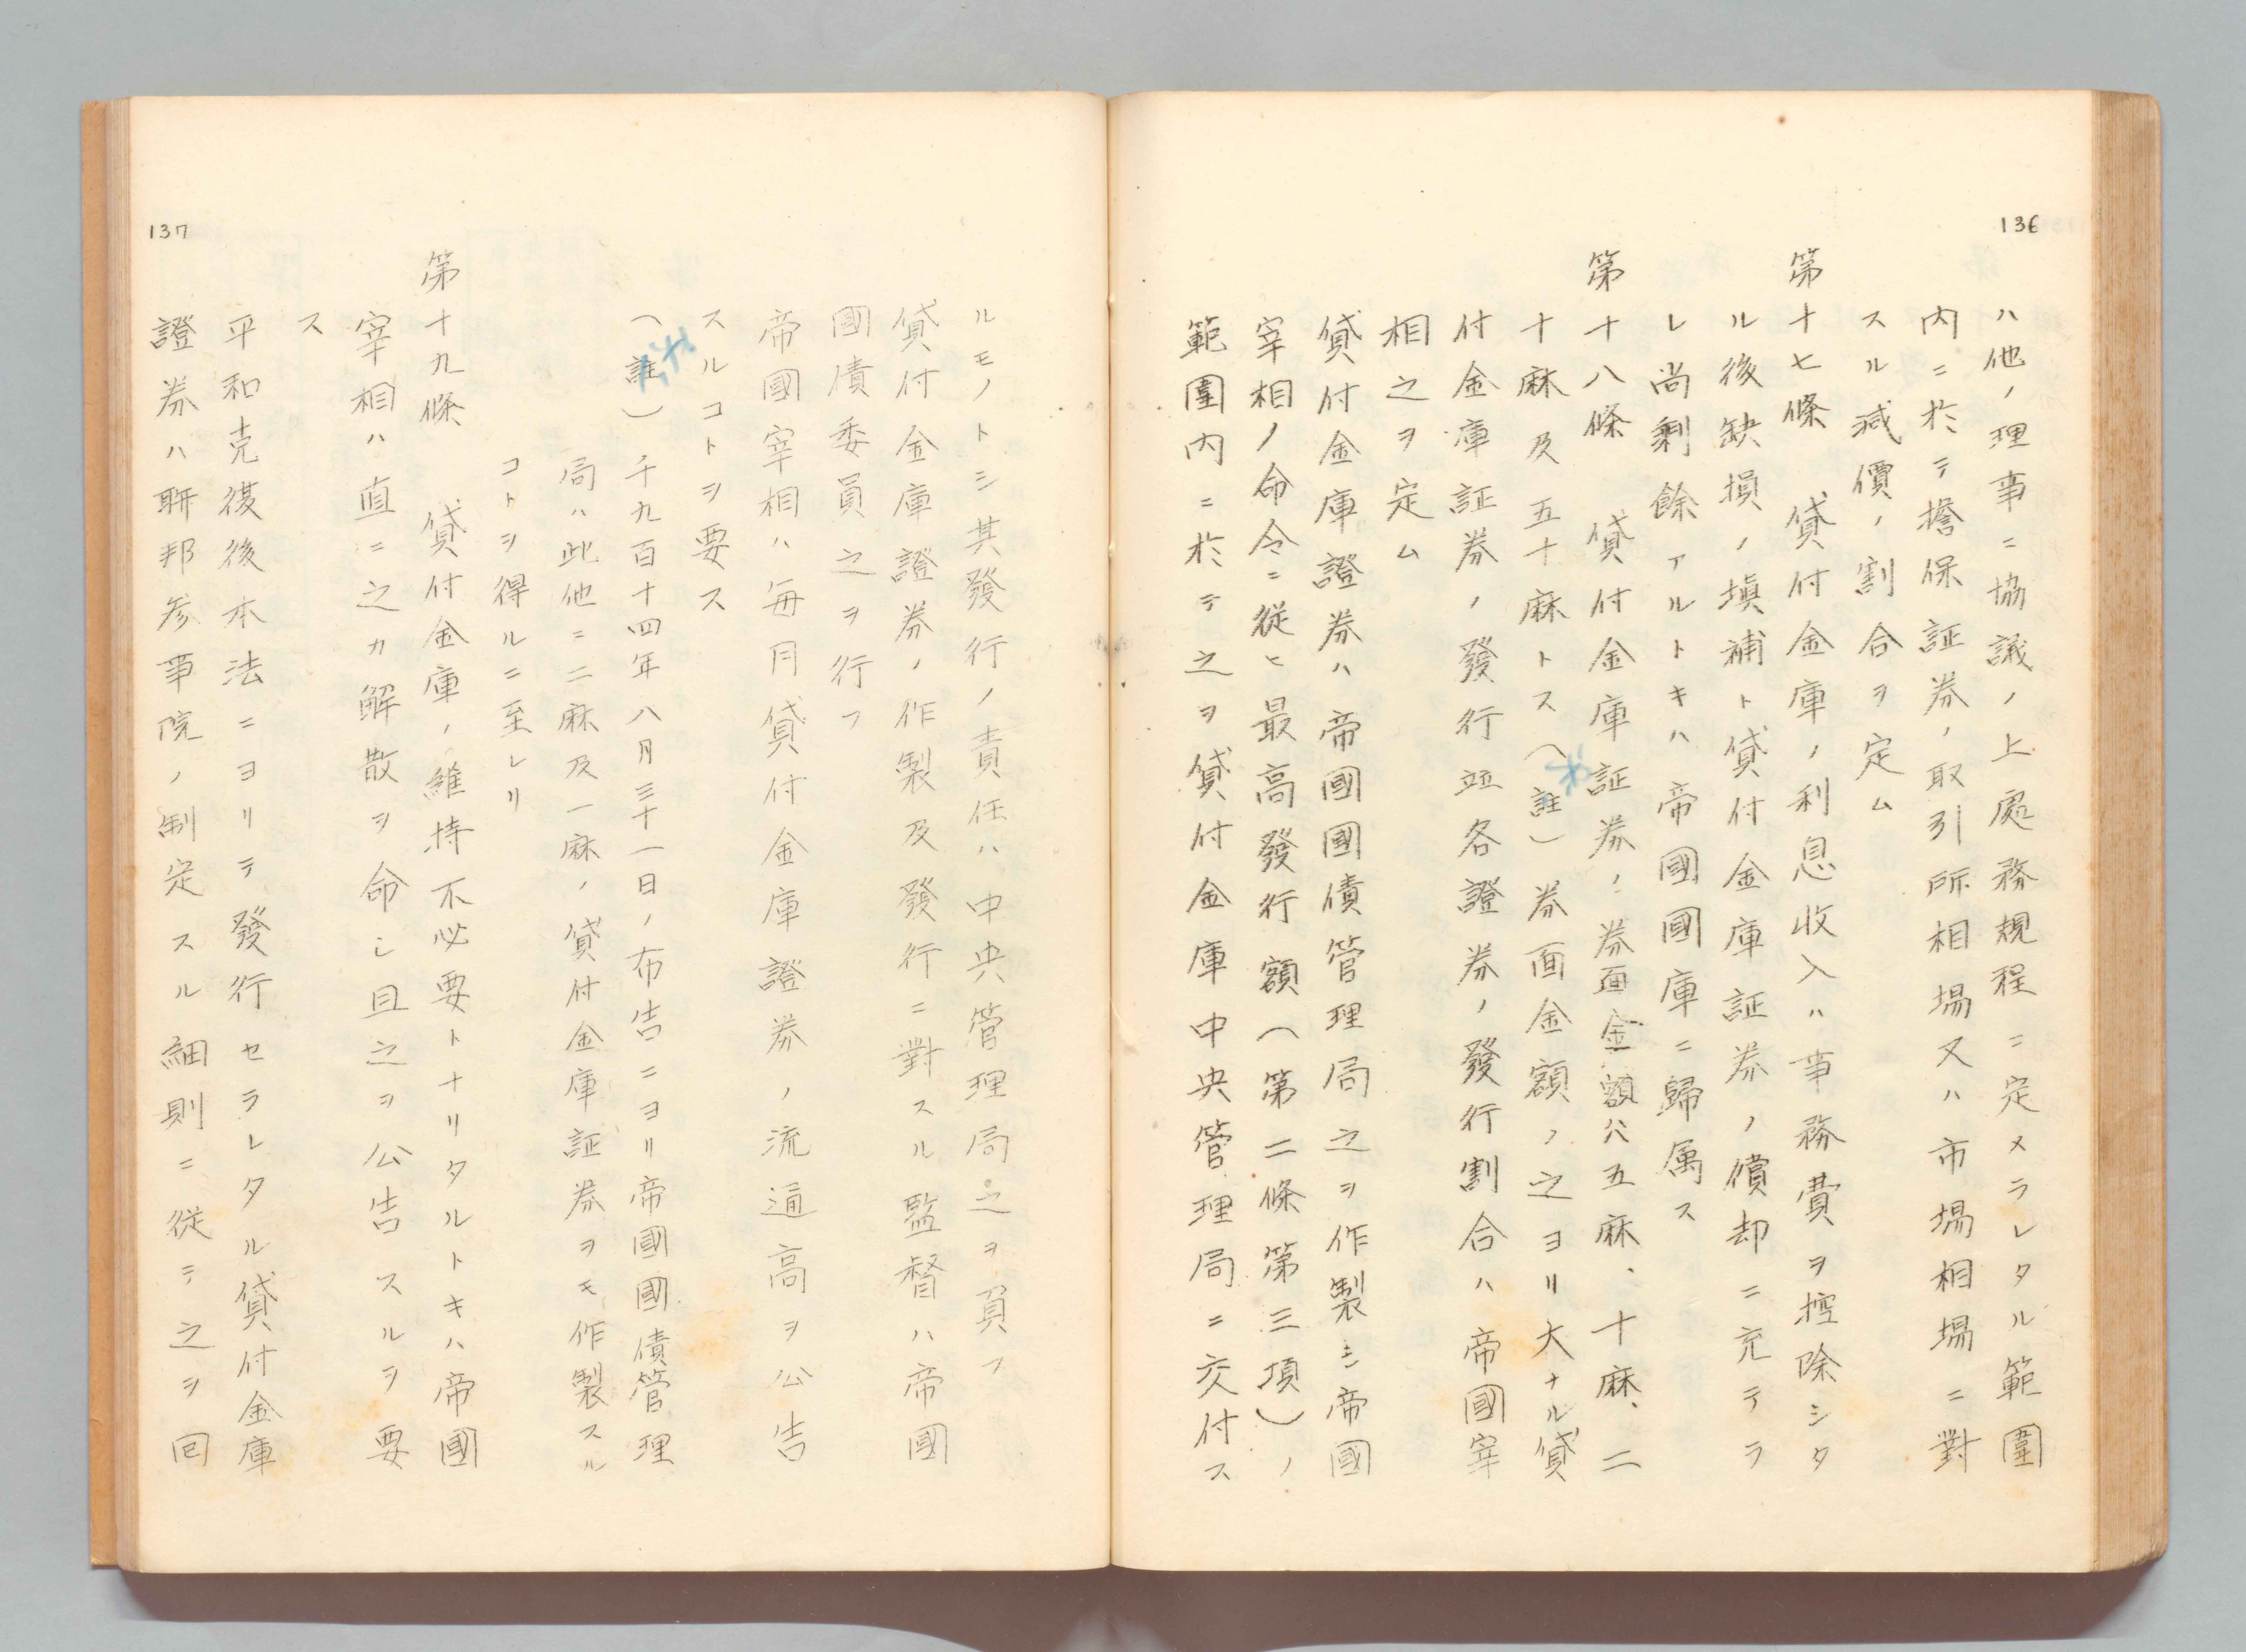 136
ハ他ノ理事ニ協議ノ上處務規程ニ定メラレタル範圍
内ニ於テ擔保証券ノ取引所相場又ハ市場相場ニ對
スル減價ノ割合ヲ定ム
第十七條 貸付金庫ノ利息收入ハ事務費ヲ控除シタ
ル後缺損ノ塡補ト貸付金庫証券ノ償却ニ充テラ
レ尚剩餘アルトキハ帝國國庫ニ歸属ス
第十八條 貸付金庫証券ノ券面金額ハ五麻、十麻、二
十麻及五十麻トス(註)券面金額ノ之ヨリ大ナル貸
付金庫証券ノ發行並各證券ノ發行割合ハ帝國宰
相之ヲ定ム
貸付金庫證券ハ帝國國債管理局之ヲ作製シ帝國
宰相ノ命令ニ從ヒ最高發行額(第二條第三項)ノ
範圍内ニ於テ之ヲ貸付金庫中央管理局ニ交付ス
ルモノトシ其發行ノ責任ハ中央管理局之ヲ負フ
貸付金庫證券ノ作製及發行ニ對スル監督ハ帝國
國債委員之ヲ行フ
帝國宰相ハ毎月貸付金庫證券ノ流通高ヲ公告
スルコトヲ要ス
(註) 千九百十四年八月三十一日ノ布告ニヨリ帝國國債管理
局ハ此他ニ二麻及一麻ノ貸付金庫証券ヲモ作製スル
コトヲ得ルニ至レリ
第十九條 貸付金庫ノ維持不必要トナリタルトキハ帝國
宰相ハ直ニ之カ解散ヲ命シ且之ヲ公告スルヲ要
ス
平和克復後本法ニヨリテ發行セラレタル貸付金庫
證券ハ聯邦参事院ノ制定スル細則ニ從テ之ヲ回
137